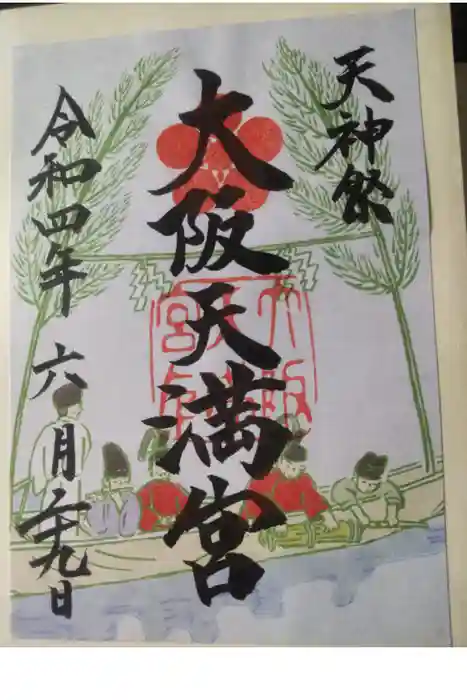 天神祭
大阪天満宮
令和四年六月二十九日